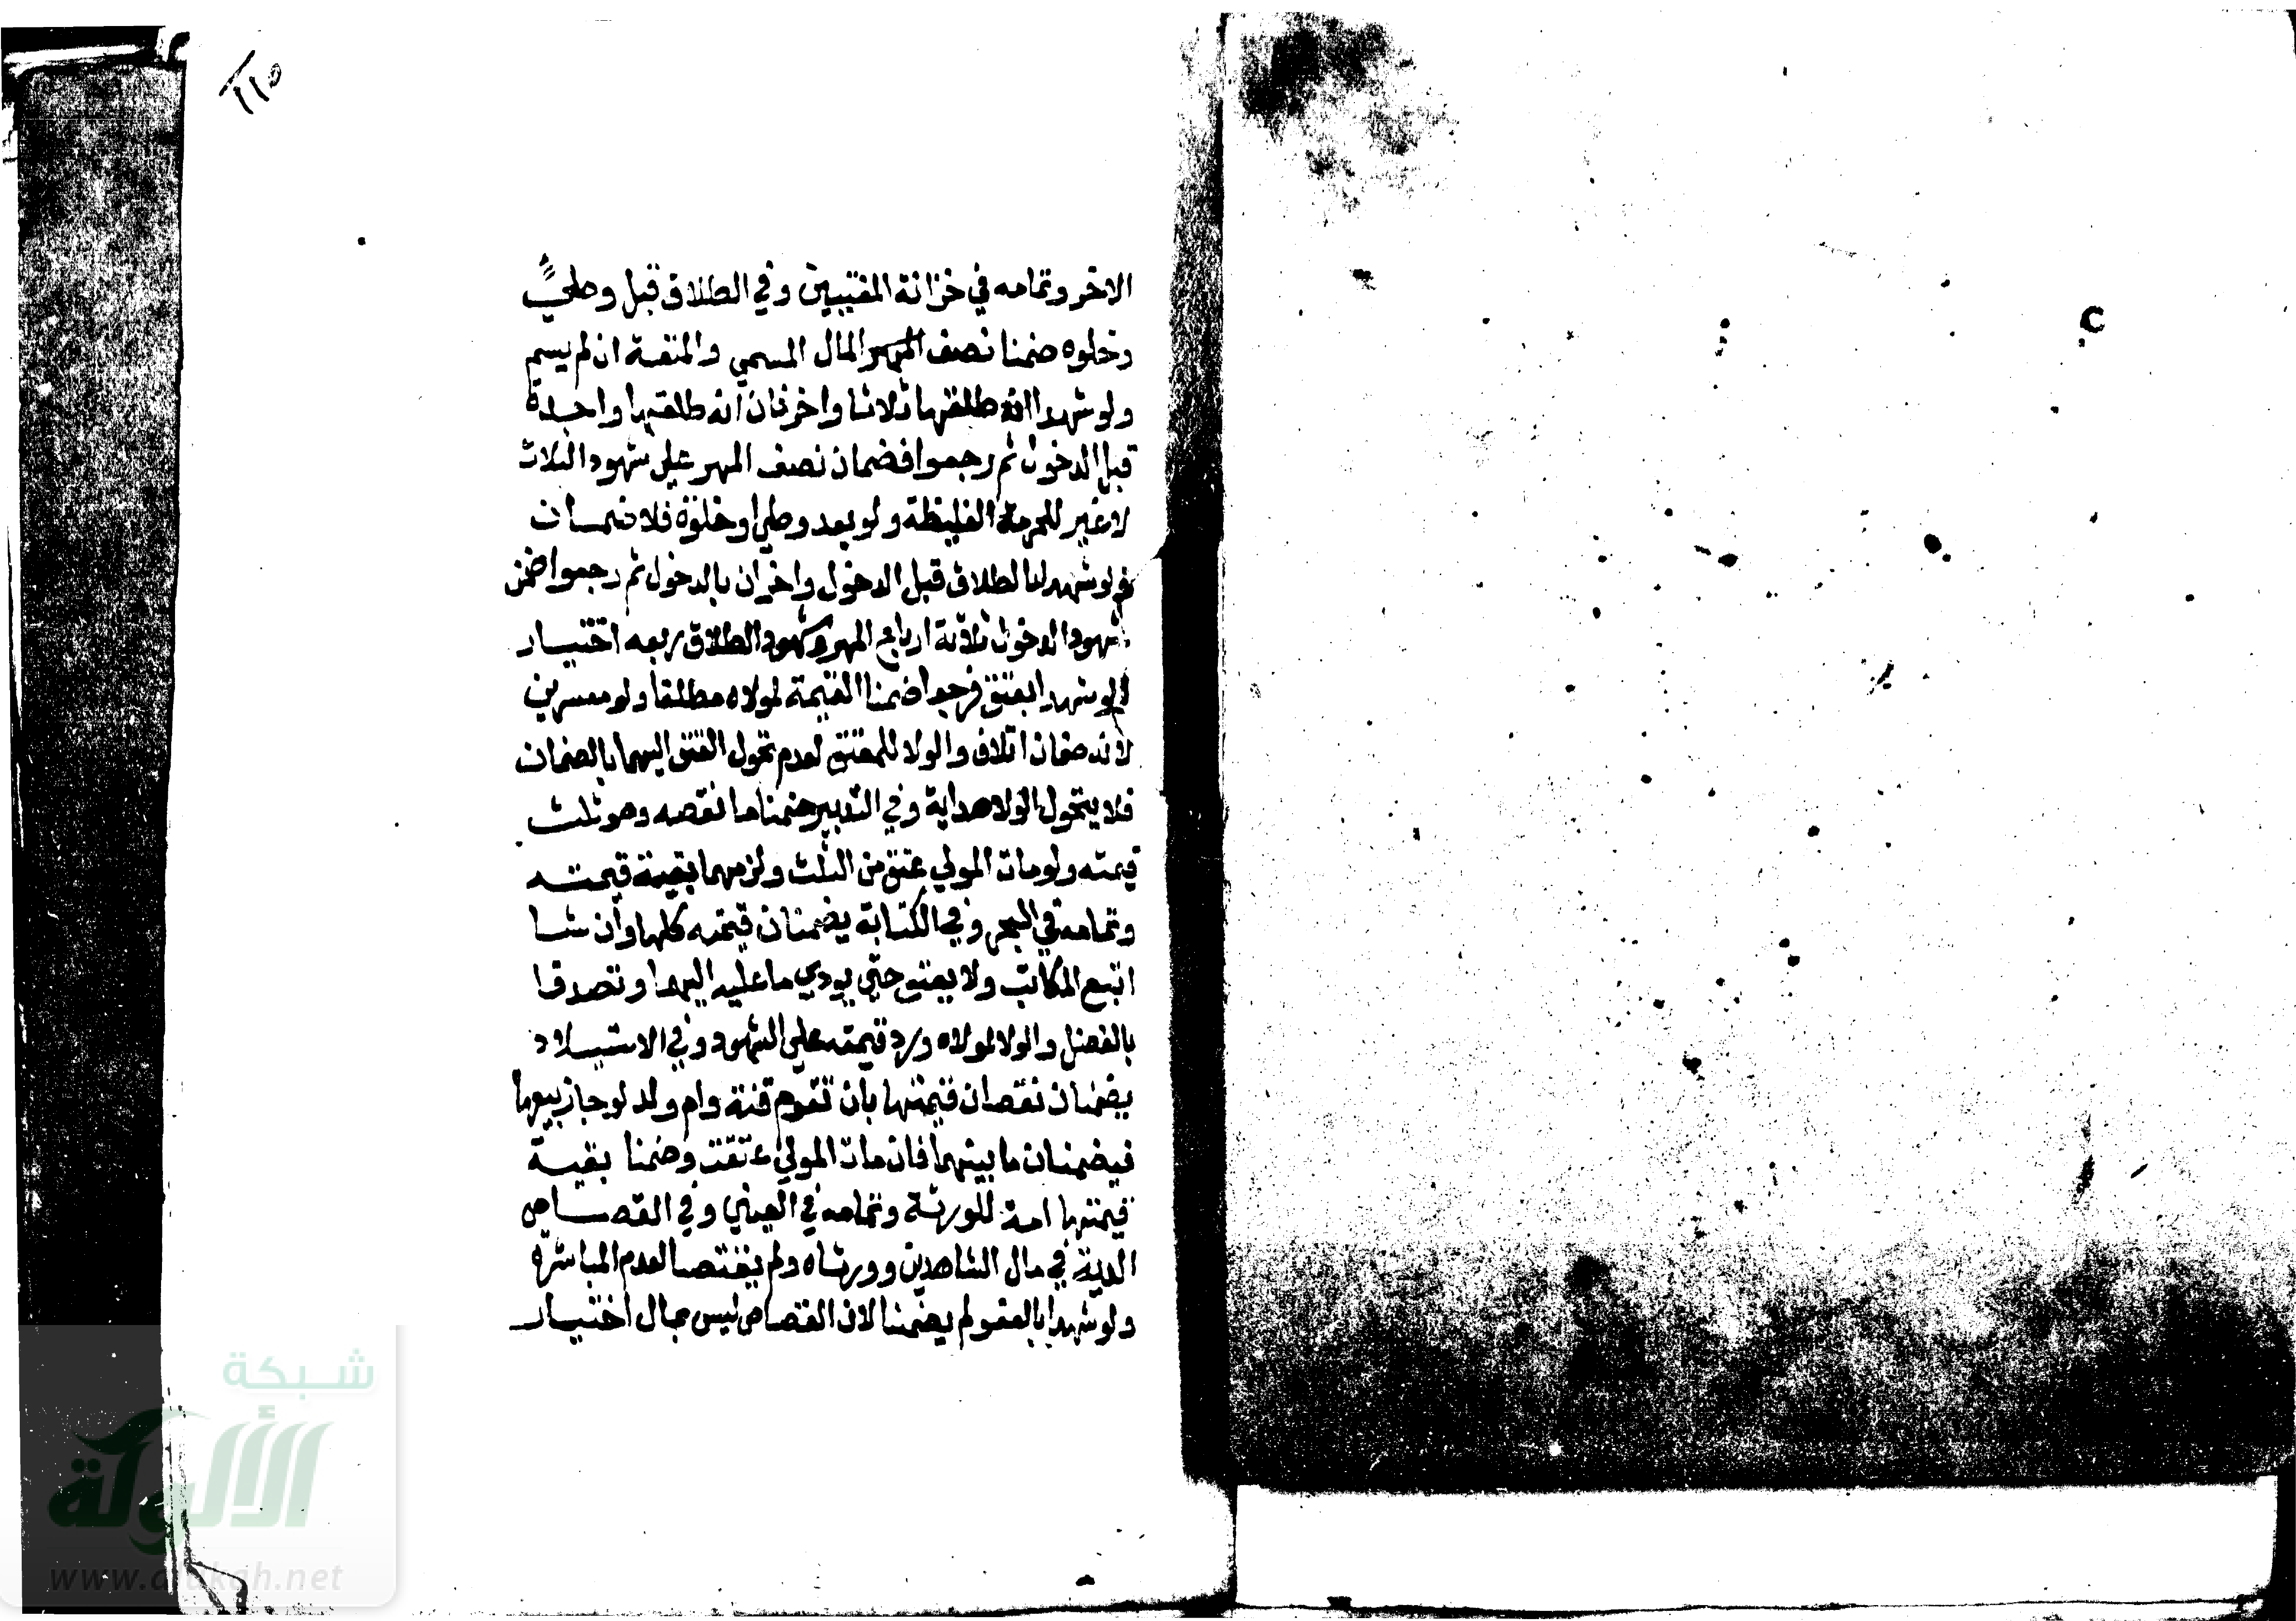 الاخر وتمامه في خزانة المفتيين وفي الطلاق قبل وطيءٍ
وخلوه ضمنا نصف المال المسمي والمتعة ان لم يسم
ولو شهدا انه طلقها ثلاثا واخران انه طلقها واحدة
قبل الدخول ثم رجعوا فضمان نصف المهر علي شهود الثلاث
لا غير للحرمة الغليظة ولو بعد وطيء او خلوة فلا ضمان
ولو شهدا بالطلاق قبل الدخول واخران بالدخول ثم رجعوا ضمن
شهود الدخول ثلاثة ارباع المهر وشهود الطلاق ربعه اختيار
ولو شهدا بعتق فرجعا ضمنا القيمة لمولاه مطلقا ولو معسرين
لانه ضمان اتلاف والولا للمعتق لعدم تحول العتق اليهما بالضمان
فلا يتحول الولا هداية وفي التدبير ضمنا ما نقصه وهو ثلث
قيمته ولو مات المولي عتق من الثلث ولزمهما بقية قيمته
وتمامه في البحر وفي الكتابة يضمنان قيمته كلها وان شا
اتبع المكاتب ولا يعتق حتي يودي ما عليه اليهما وتصدقا
بالفضل والولا لمولاه ورد قيمته علي الشهود وفي الاستيلاد
يضمنان نقصان قيمتها بان تقوم قنة وام ولد لو جاز بيعها
فيضمنان ما بينهما فان مات المولي عتقت وضمنا بقية
قيمتها امة للورثة وتمامه في العيني وفي القصاص
الدية في مال الشاهدين وورثاه ولم يقتصا لعدم المباشرة
ولو شهدا بالعفو لم يضمنا لان القصاص ليس بمال اختيار
شبكة
الألوكة
www.alukah.net